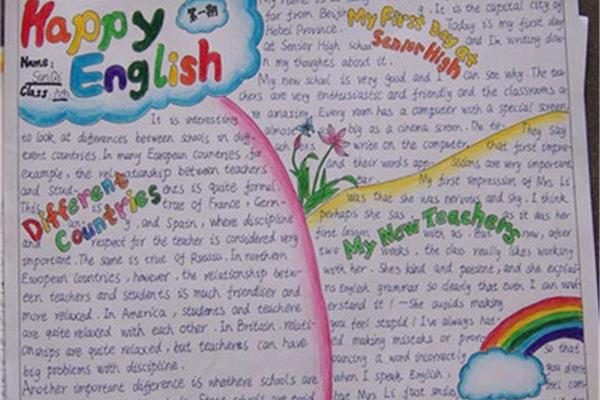 Happy
English
第一期
Name:
Class:
My First Day at
Senior High
far from Beijing. It is the capital city of
Hebei Province. Today is my first day
at Senior High school and I'm writing down
my thoughts about it.
My new school is very good and I can see why. The tea-
chers are very enthusiastic and friendly and the classrooms a-
re amazing. Every room has a computer with a special screen,
almost as big as a cinema screen. The te-
achers write on the computer,
and their words
They say
that first impre-
ssions are very important.
My first impression of Mrs Li
was that she was nervous and shy. I think
perhaps she was as it was her
first lesson with us. But now, after
two weeks, the class really likes working
with her. She's kind and patient, and she explai-
ns English grammar so clearly that even I can und-
erstand it! — She avoids making
you feel stupid! I've always hat-
ed making mistaks or pron-
ouncing a word incorrectly
when I speak English,
but Mrs Li just smiles
so that
you don't
feel com-
My New Teachers
Different
Countries
It is interesting
to look at differences between schools in diff-
erent countries. In many European countries for
example, the relationship between teachers
and students is quite formal.
This is true of France, Germ-
any, and Spain, where discipline
and respect for the teacher is considered very
important. The same is true of Russia. In northern
European countries, however, the relationship betw-
een teachers and students is much friendlier and
more relaxed. In America, students and teachers
are quite relaxed with each other. In Britain, relati-
onships are quite relaxed, but teachers can have
big problems with discipline.
Another important difference is whethere schools are